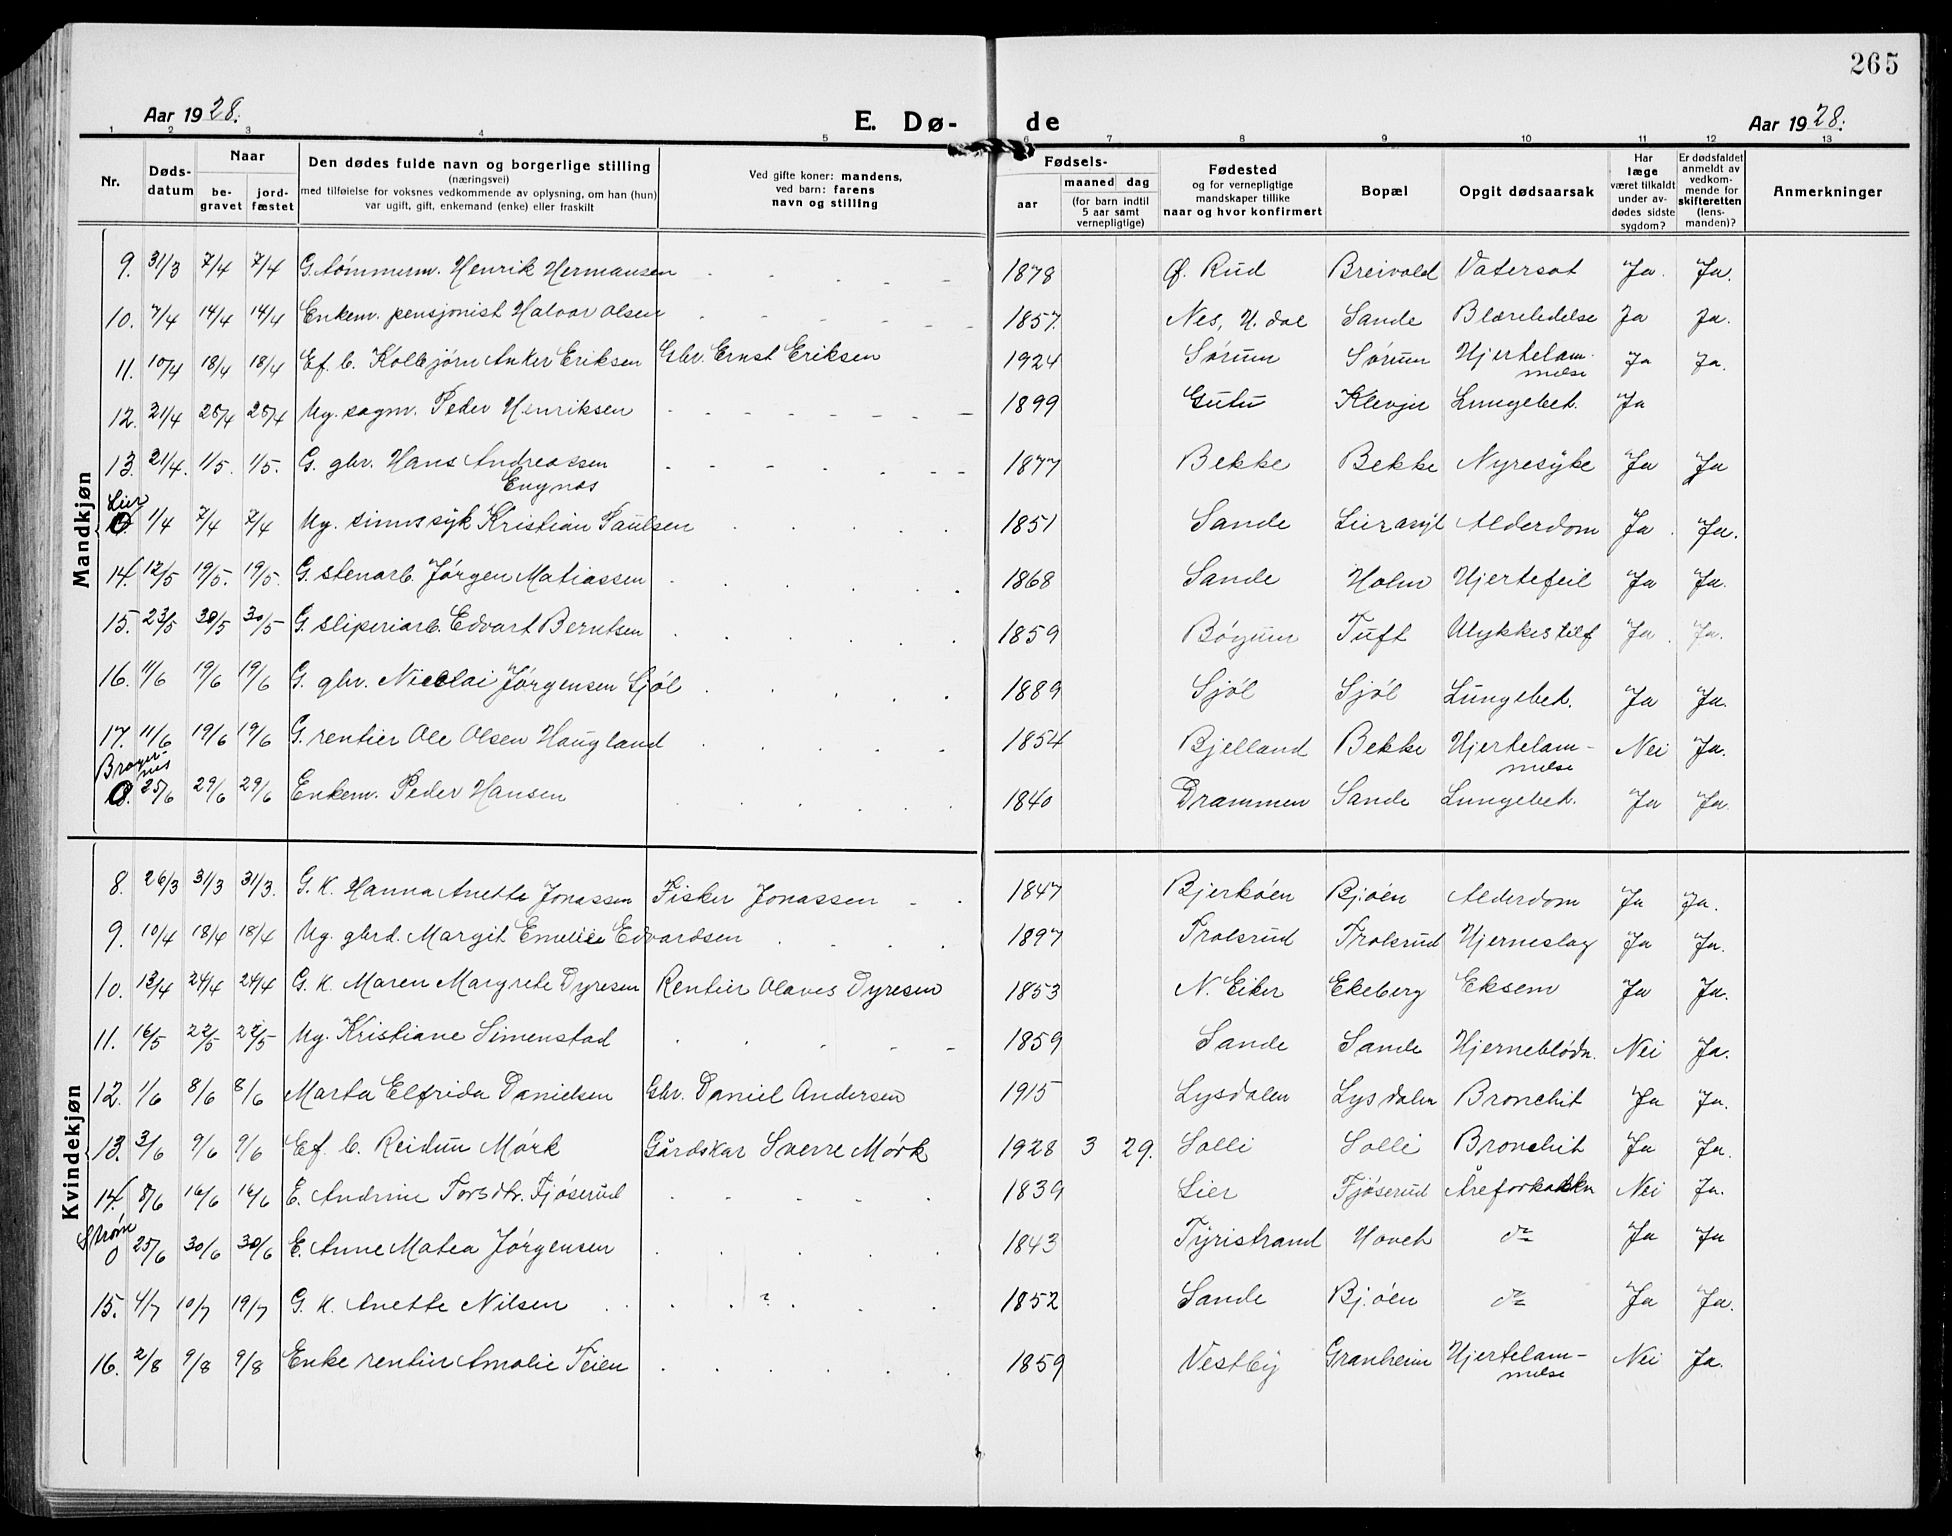 265
Aar 1928. E. Dø- de Aar 1928.
1 2 3 4 5 6 7 8 9 10 11 12 13
Nr. Døds-datum Naar be-gravet jord-fæstet Den dødes fulde navn og borgerlige stilling (næringsvei) med tilføielse for voksnes vedkommende av oplysning, om han (hun) var ugift, gift, enkemand (enke) eller fraskilt Ved gifte koner: mandens, ved barn: farens navn og stilling Fødsels- aar maaned dag (for barn indtil 5 aar samt vernepligtige) Fødested og for vernepligtige mandskaper tillike naar og hvor konfirmert Bopæl Opgit dødsaarsak Har læge været tilkaldt under av-dødes sidste sygdom? Er dødsfaldet anmeldt av vedkom-mende for skifteretten (lens-manden)? Anmerkninger
Mandkjøn
9. 31/3 7/4 7/4 G. tømmerm. Henrik Hermansen 1878 Ø. Rud Breivold Vatersot Ja. Ja.
10. 7/4 14/4 14/4 Enkem. pensjonist Halvor Olsen 1857 Nes, H. dal Sande Blæreledelse Ja Ja.
11. 10/4 18/4 18/4 Ef. b. Kolbjørn Anker Eriksen Gbr. Ernst Eriksen 1924 Sørum Sørum Hjertelam-melse Ja Ja.
12. 21/4 25/4 25/4 Ug. sagm. Peder Henriksen 1899 Gutu Klevjer Lungebet. Ja
13. 21/4. 1/5. 1/5. G. gbr. Hans Andreassen 1877 Bekke Bekke Nyresyke Ja Ja
Engnæs
Lier
0 1/4 7/4 7/4 Ug. sinnssyk Kristian Paulsen 1851 Sande Lierasyl Alderdom Ja. Ja.
14. 12/5 19/5. 19/5. G. stenarb. Jørgen Matiassen 1868 Sande Holm Hjertefeil Ja Ja.
15. 23/5 30/5 30/5 G. sliperiarb. Edvart Berntsen 1859 Bøyum Tuft Ulykkestilf Ja. Ja.
16. 11/6 19/6 19/6 G. gbr. Nicolai Jørgensen Sjøl 1889 Sjøl Sjøl Lungebet. Ja Ja.
17. 11/6 19/6 19/6 G. rentier Ole Olsen Haugland 1854 Bjelland Bekke Hjertelam-melse Nei Ja.
Brager-nes
0. 25/6 29/6 29/6 Enkem. Peder Hansen 1840 Drammen Sande Lungebet. Ja Ja.
Kvindekjøn
8. 26/3 31/3 31/3. G. K. Hanna Anette Jonassen Fisker Jonassen 1847 Bjerkøen Bjøen Alderdom Ja Ja.
9. 10/4 18/4 18/4 Ug. gbrd. Margit Emelie Edvardsen 1897 Trolsrud Trolsrud Hjerneslag Ja Ja.
10. 13/4 24/4 24/4 G. K. Maren Margrete Dyresen Rentier Olaves Dyresen 1853 N. Eiker Ekeberg Eksem Ja Ja.
11. 16/5 22/5 22/5 Ug. Kristiane Simenstad 1859 Sande Sande Hjerneblødn. Nei Ja.
12. 1/6 8/6 8/6 Marta Elfrida Danielsen Gbr. Daniel Andersen 1915 Lysdalen Lysdalen Bronchit Ja Ja.
13. 3/6 9/6 9/6 Ef. b. Reidun Mørk Gårdskar Sverre Mørk 1928 3 29. Solli Solli Bronchit Ja Ja.
14. 8/6 16/6 16/6 E. Andrine Torsdtr. Fjøserud 1839 Lier Fjøserud Åreforkalkn Nei Ja.
Strøm
0 25/6 30/6 30/6 E. Anne Matea Jørgensen 1843 Tyristrand Hovet do Ja Ja
15. 4/7 10/7 19/7 G. K. Anette Nilsen ? 1852 Sande Bjøen do Ja Ja.
16. 2/8 9/8 9/8 Enke rentier Amalie Teien 1859 Vestby Granheim Hjertelam-melse Nei Ja.